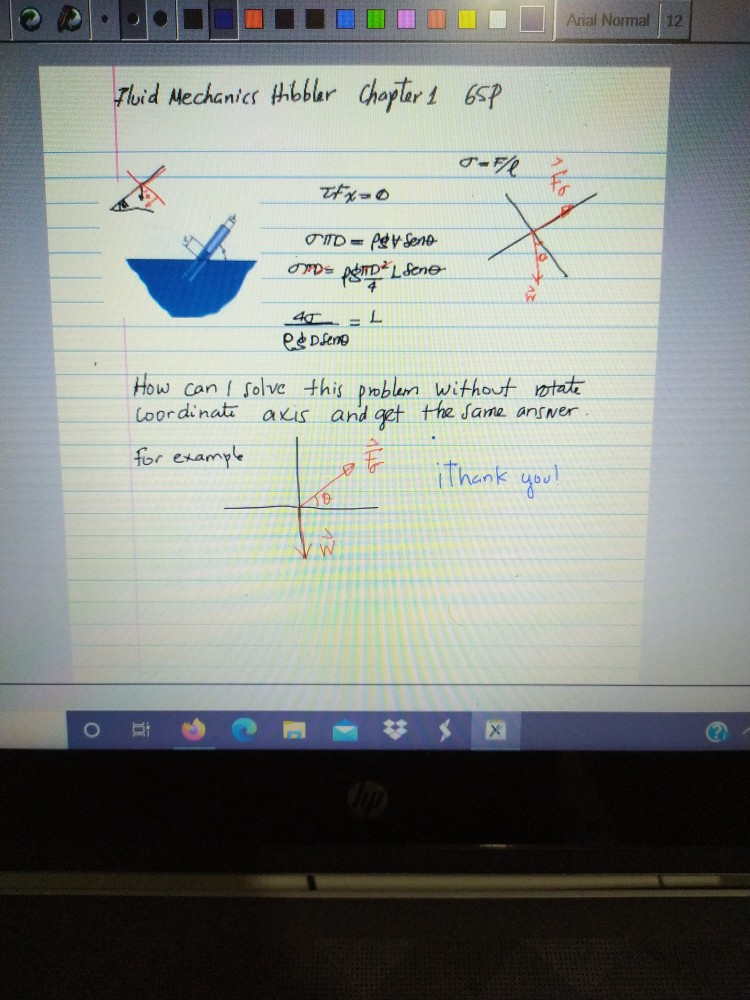 Arial Normal 12
Fluid Mechanics Hibbler Chapter 1 65P
σ = F/l
F⃗σ
ΣFx = 0
θ
σπD = ρg∀ Senθ
σπD = ρgπD²/4 L Senθ
θ
W⃗
4σ/ρgDSenθ = L
How can I solve this problem without rotate
coordinate axis and get the same answer.
For example
F⃗σ
¡Thank you!
θ
W⃗
hp